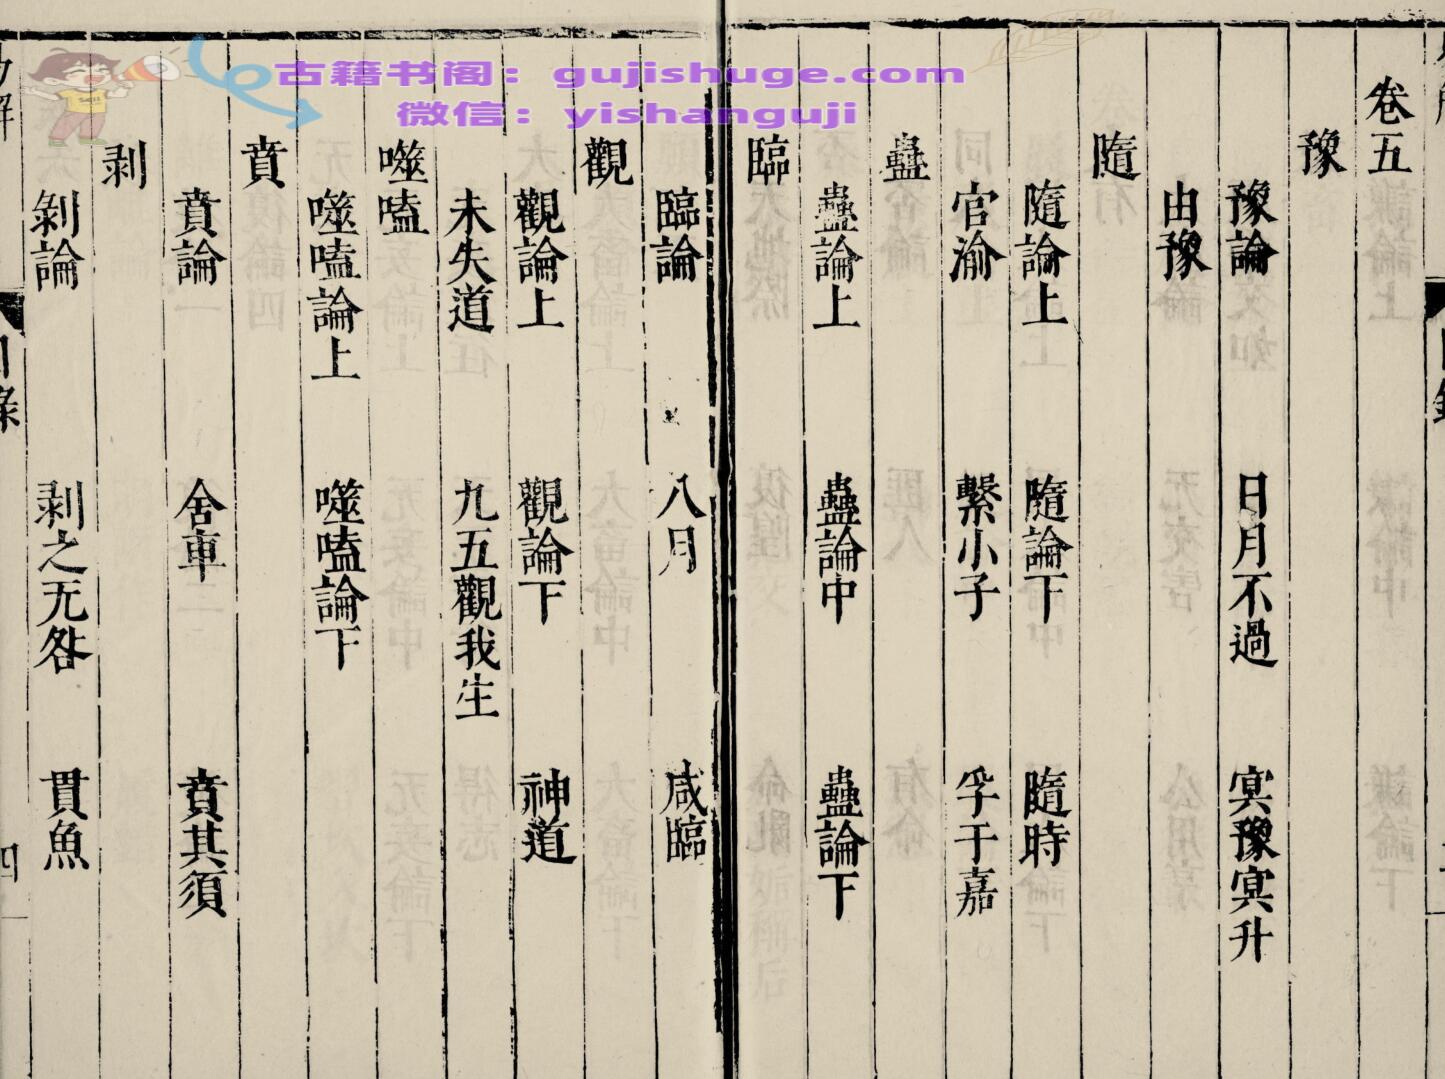 卷五
豫
豫論 日月不過 冥豫冥升
由豫
隨
隨論上 隨論下 隨時
官渝 繫小子 孚于嘉
蠱
蠱論上 蠱論中 蠱論下
臨
臨論 八月 咸臨
觀
觀論上 觀論下 神道
未失道 九五觀我生
噬嗑
噬嗑論上 噬嗑論下
賁
賁論 舍車 賁其須
剥
剝論 剥之无咎 貫魚
目錄 四
古籍书阁：gujishuge.com
微信：yishanguji